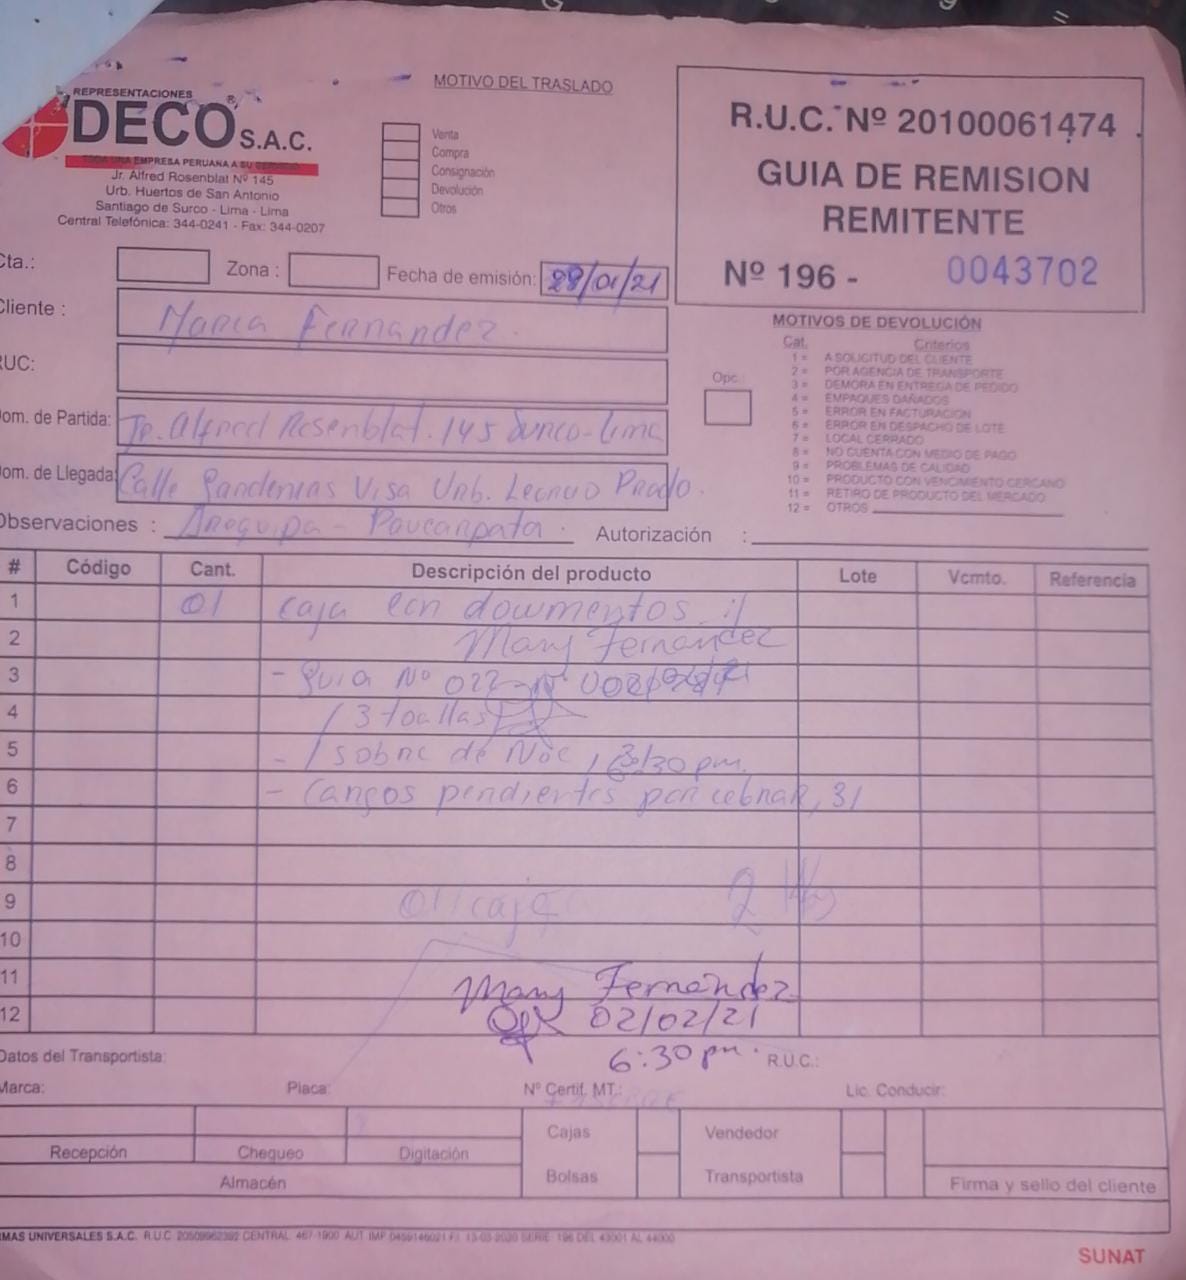 REPRESENTACIONES
DECO® S.A.C.
TODA UNA EMPRESA PERUANA A SU SERVICIO
Jr. Alfred Rosenblat Nº 145
Urb. Huertos de San Antonio
Santiago de Surco - Lima - Lima
Central Telefónica: 344-0241 - Fax: 344-0207
MOTIVO DEL TRASLADO
Venta
Compra
Consignación
Devolución
Otros
R.U.C. Nº 20100061474
GUIA DE REMISION
REMITENTE
Nº 196 - 0043702
Cta.:
Zona :
Fecha de emisión: 28/01/21
Cliente : Maria Fernandez.
RUC:
Dom. de Partida: Jr. Alfred Rosenblat. 145 Surco-Lima
Dom. de Llegada: Calle Visa Urb. Prado.
Observaciones : Arequipa - Paucarpata.
Autorización :
MOTIVOS DE DEVOLUCIÓN
Cat. Criterios
1 = A SOLICITUD DEL CLIENTE
2 = POR AGENCIA DE TRANSPORTE
3 = DEMORA EN ENTREGA DE PEDIDO
4 = EMPAQUES DAÑADOS
5 = ERROR EN FACTURACION
6 = ERROR EN DESPACHO DE LOTE
7 = LOCAL CERRADO
8 = NO CUENTA CON MEDIO DE PAGO
9 = PROBLEMAS DE CALIDAD
10 = PRODUCTO CON VENCIMIENTO CERCANO
11 = RETIRO DE PRODUCTO DEL MERCADO
12 = OTROS
Opc.:
# Código Cant. Descripción del producto Lote Vcmto. Referencia
1 01 caja con documentos
2 Mary Fernández
3 - Guia Nº 022-
4 / 3 toallas
5 - 1 sobre de Noe, 30 pm.
6 - Cargos pendientes por cobrar, 31
7
8
9 01 caja 2
10
11 Mary Fernández
12 02/02/21
6:30 pm.
Datos del Transportista:
R.U.C.:
Marca:
Placa:
Nº Certif. MT.:
Lic. Conducir:
Recepción
Chequeo
Digitación
Almacén
Cajas
Bolsas
Vendedor
Transportista
Firma y sello del cliente
RMAS UNIVERSALES S.A.C. R.U.C. 20509962392 CENTRAL 467-1900 AUT. IMP. 0459146021 F.I. 13-03-2020 SERIE 196 DEL 43001 AL 44000
SUNAT